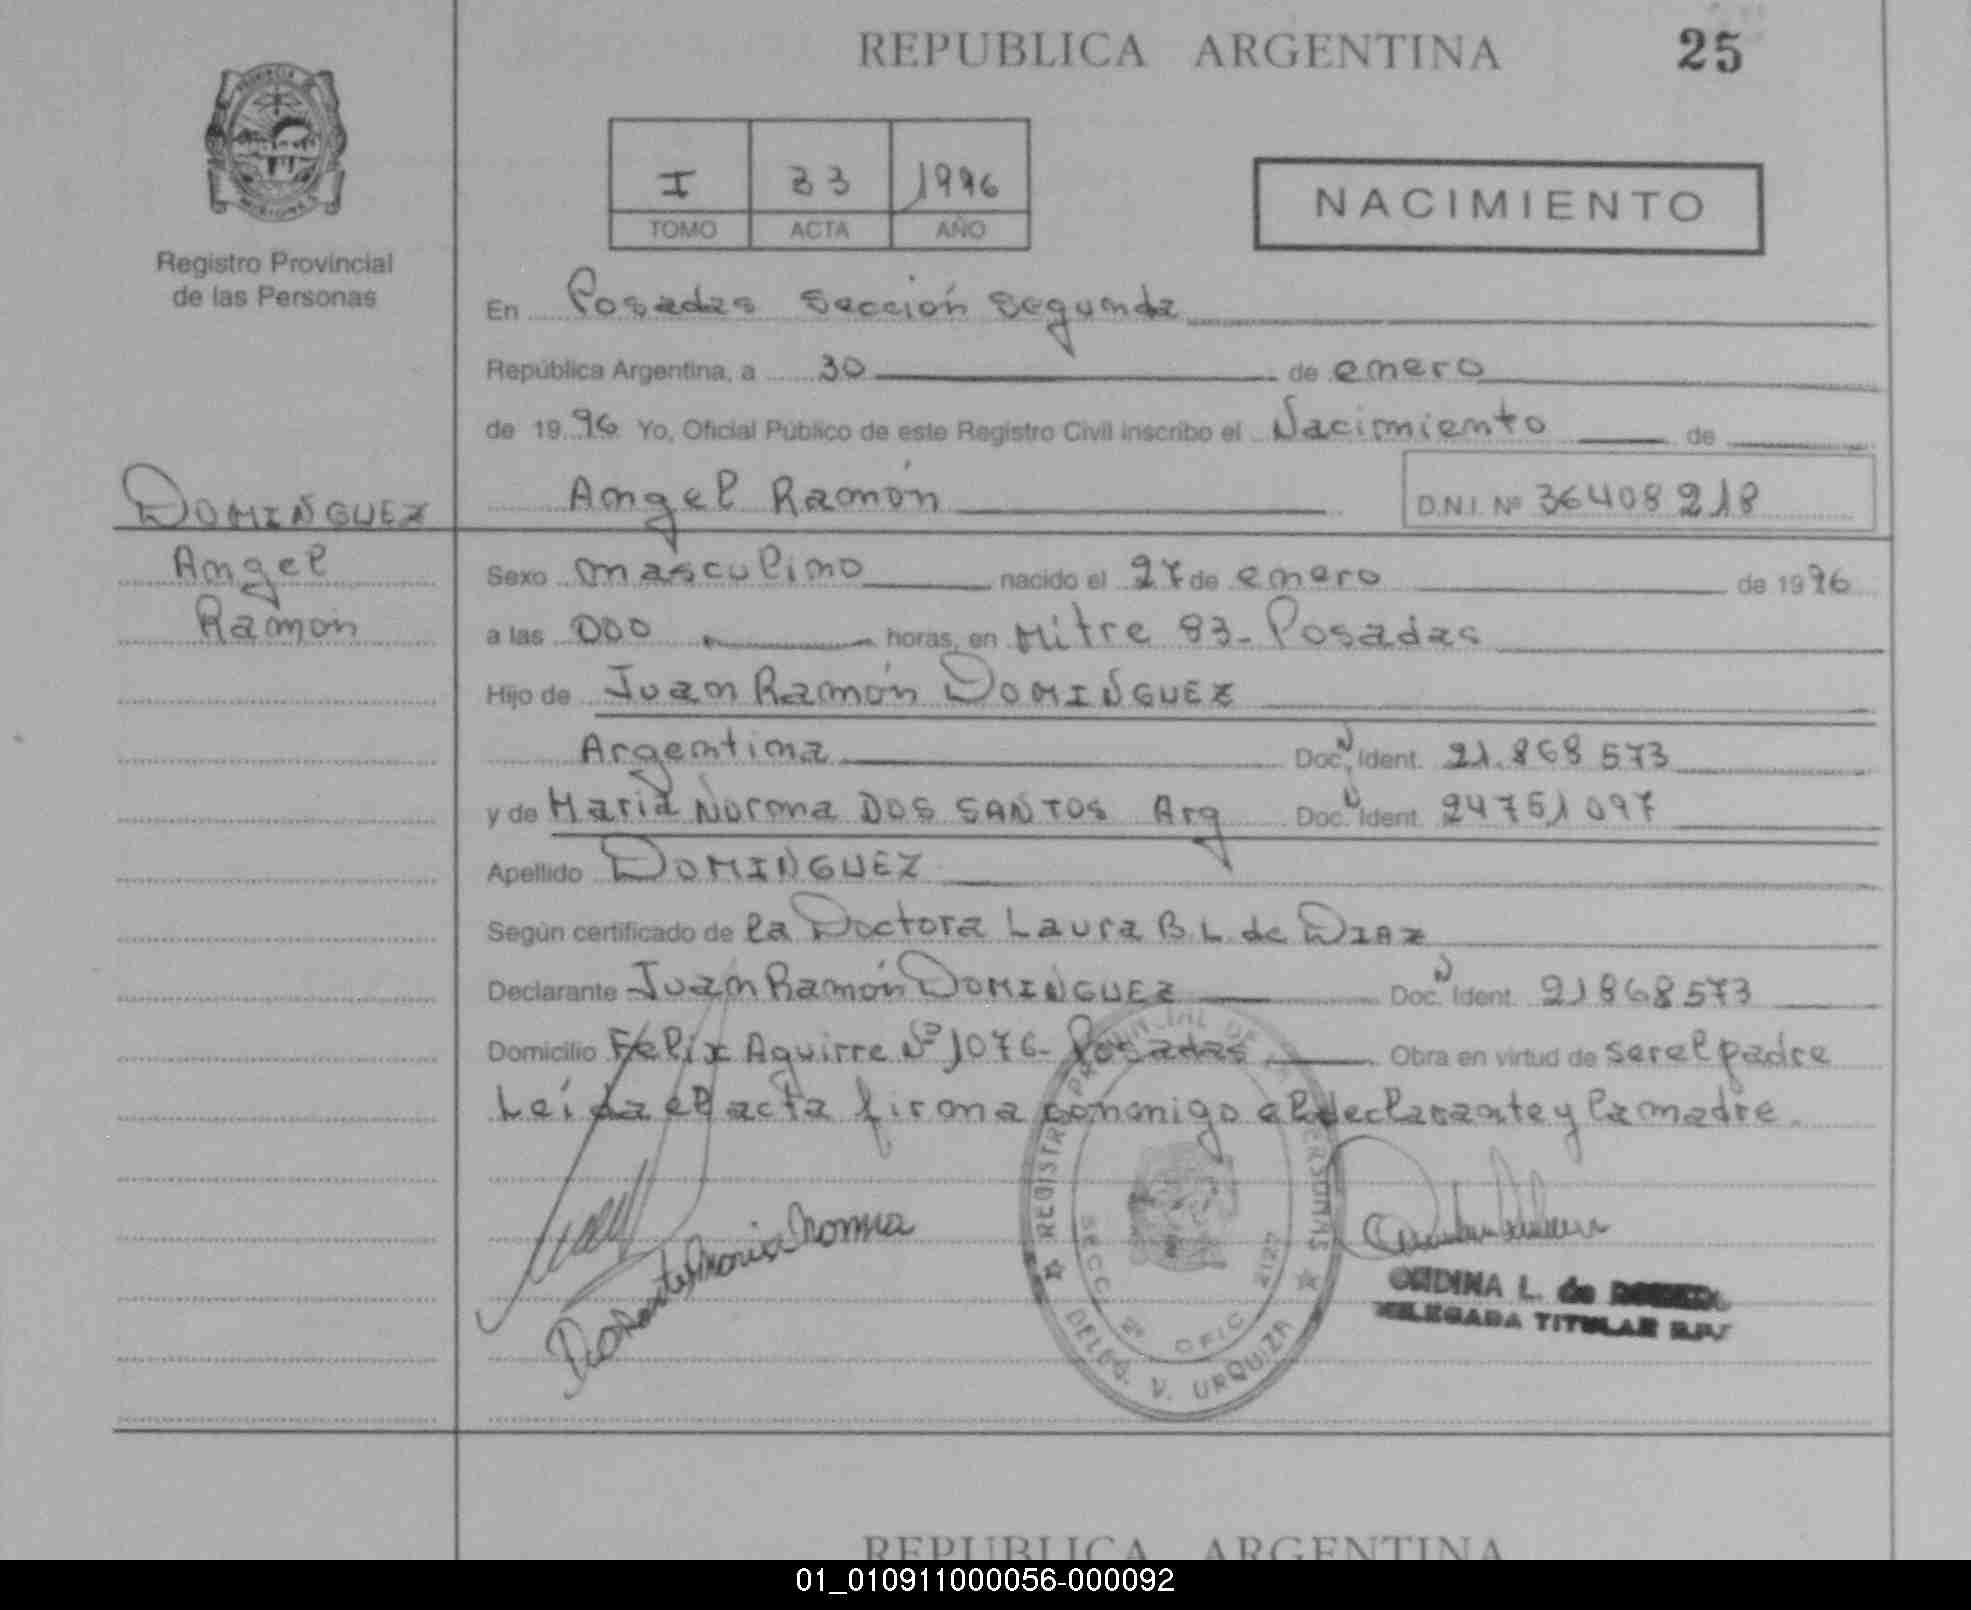 REPUBLICA ARGENTINA 25
PROVINCIA DE
MISIONES
I 33 1996
TOMO ACTA AÑO
NACIMIENTO
Registro Provincial
de las Personas
En Posadas Sección Segunda
República Argentina, a 30 de enero
de 1996 Yo, Oficial Público de este Registro Civil inscribo el Nacimiento de
Angel Ramón D.N.I. Nº 36408218
DOMINGUEZ
Angel
Ramón
Sexo masculino nacido el 27 de enero de 1996
a las 000 horas, en Mitre 93- Posadas
Hijo de Juan Ramón DOMINGUEZ
Argentina Doc. N Ident. 21.868573
y de Maria Norma DOS SANTOS Arg Doc. N Ident. 24751097
Apellido DOMINGUEZ
Según certificado de la Doctora Laura B L. de DIAZ
Declarante Juan Ramón DOMINGUEZ Doc. N Ident. 21868573
Domicilio Felix Aguirre Nº 1076- Posadas Obra en virtud de ser el padre
Leída el acta firma conmigo el declarante y la madre.
Dos Santos Maria Norma
REGISTRO PROVINCIAL DE LAS PERSONAS
SECC 2ª OFIC 2127
DELEG. V. URQUIZA
L. de
DELEGADA TITULAR
REPUBLICA ARGENTINA
01_010911000056-000092